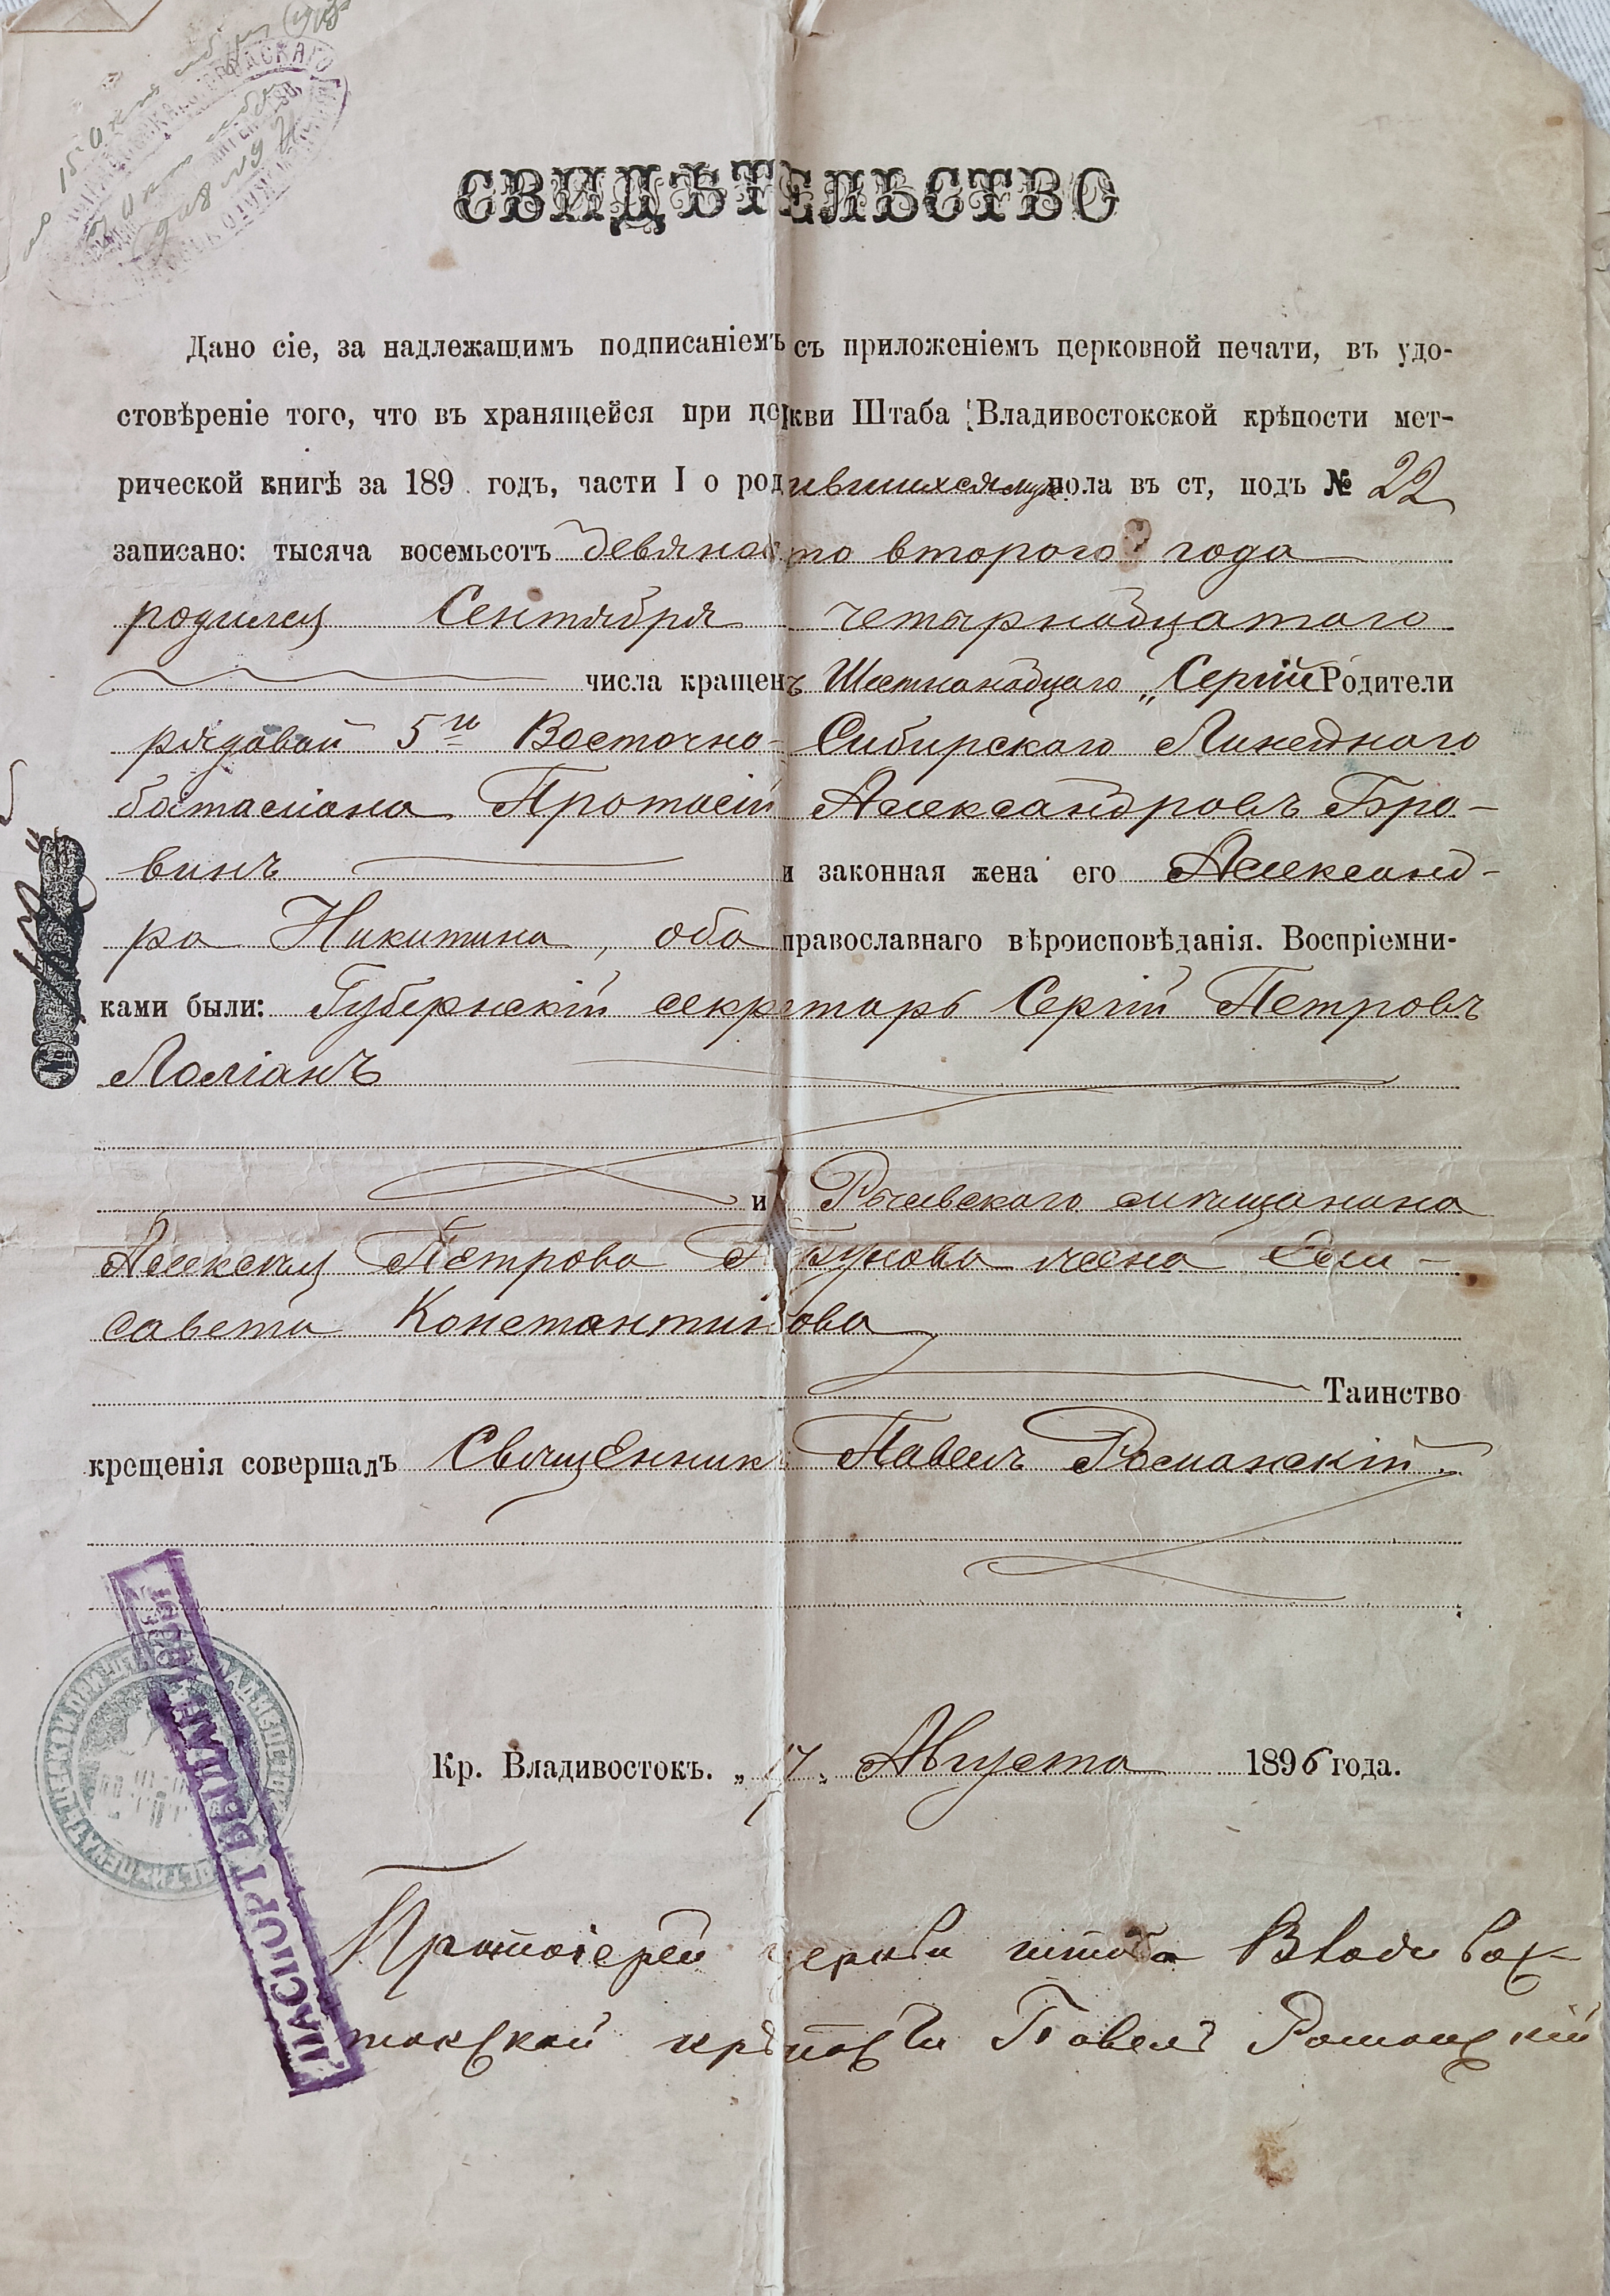 СВИДѢТЕЛЬСТВО
Дано сіе, за надлежащимъ подписаніемъ съ приложеніемъ церковной печати, въ удо-
стовѣреніе того, что въ хранящейся при церкви Штаба Владивостокской крѣпости мет-
рической книгѣ за 189 годъ, части I о родившихся муж. пола въ ст, подъ № 22
записано: тысяча восемьсотъ девяносто второго года
родился Сентября четырнадцатого
числа крещенъ Шестнанадцаго „Сергій Родители
рядовой 5го Восточно-Сибирскаго Линейнаго
баталіона Протасій Александровъ Бро-
винъ и законная жена его Александ-
ра Никитина, оба православнаго вѣроисповѣданія. Воспріемни-
ками были: Губернскій секретарь Сергій Петровъ
Лоліанъ
и мѣщанина
Алексѣя Петрова жена Ели-
савета Константинова
Таинство
крещенія совершалъ Священникъ Павелъ Романскій.
Кр. Владивостокъ. „17„ Августа 1896 года.
Протоіерей церкви штаба Владивос-
токской крѣпости Павелъ Романскій
ПАСПОРТ ВЫДАН